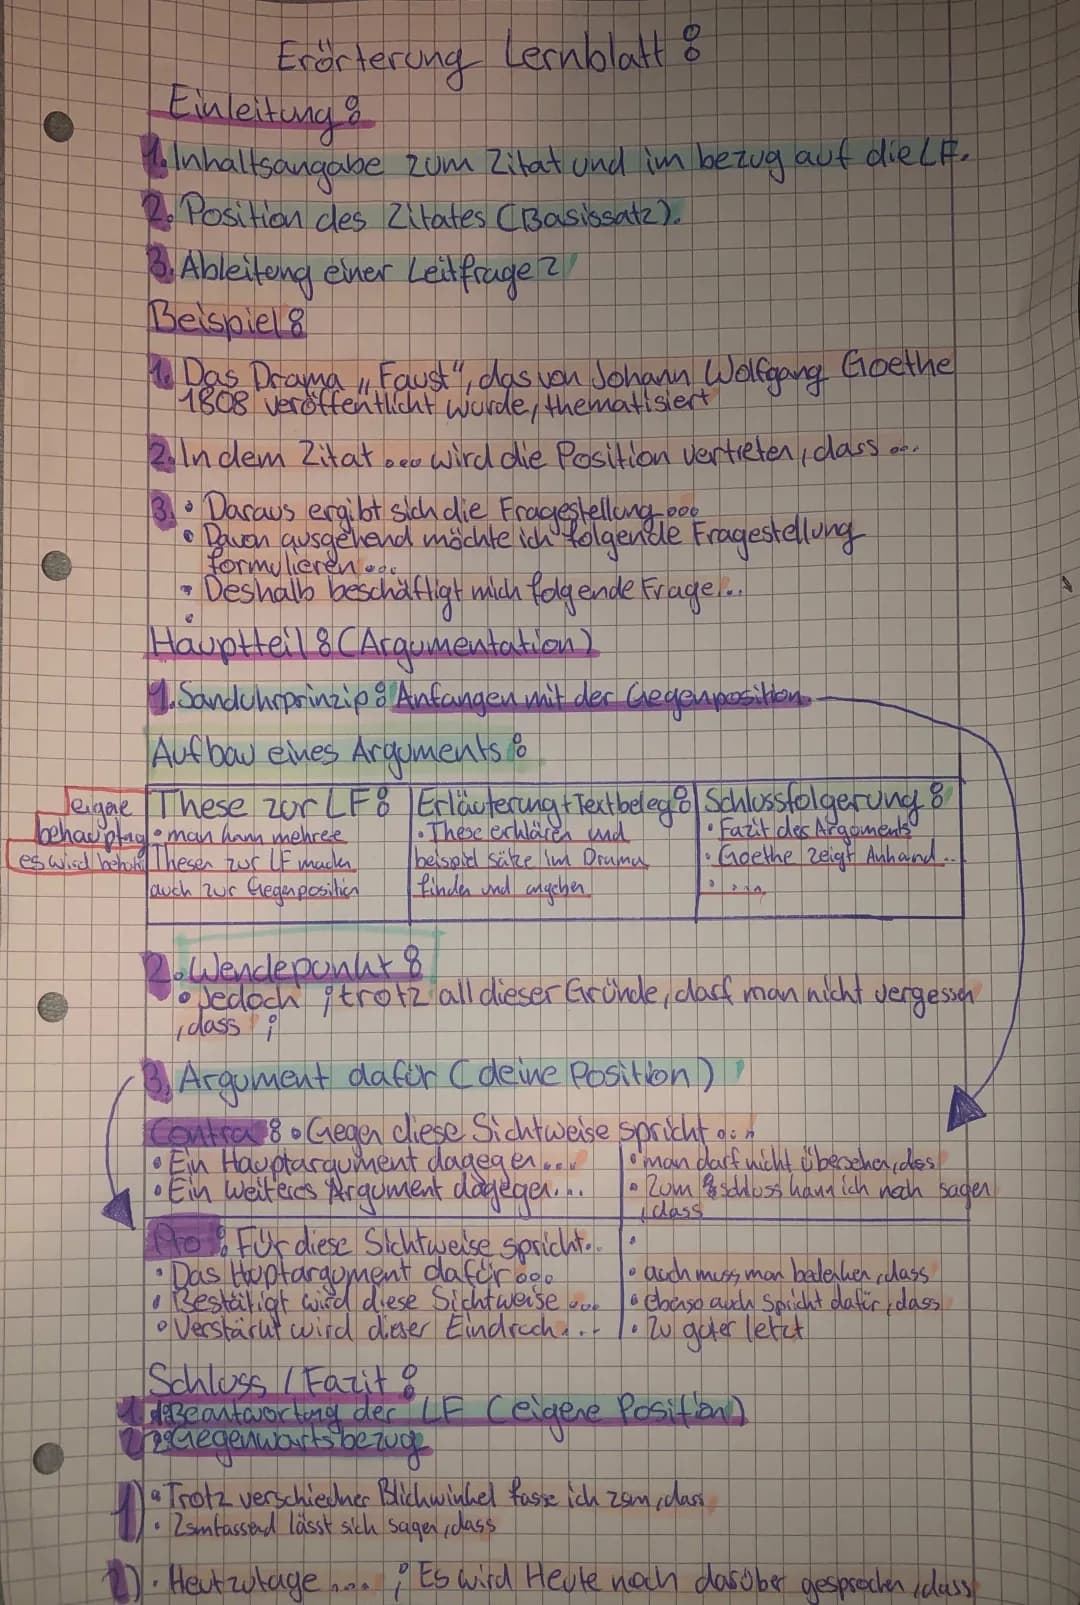 Erörterung Lernblatt :
Einleitung :
1. Inhaltsangabe zum Zitat und im bezug auf die LF.
2. Position des Zitates (Basissatz).
3. Ableitung einer Leitfrage ?
Beispiel :
1. Das Drama „Faust", das von Johann Wolfgang Goethe
1808 veröffentlicht wurde, thematisiert
2. In dem Zitat ... wird die Position vertreten, dass ...
3. • Daraus ergibt sich die Fragestellung ...
• Davon ausgehend möchte ich folgende Fragestellung
formulieren ...
• Deshalb beschäftigt mich folgende Frage ...
•
Hauptteil : (Argumentation)
1. Sanduhrprinzip : Anfangen mit der Gegenposition
Aufbau eines Arguments :
eigene
behauptng
es wird
These zur LF :
• man kann mehree
Thesen zur LF machen
auch zur Gegenposition
Erläuterung + Textbeleg :
• These erklären und
beispiel sätze im Drama
finden und angeben
Schlussfolgerung :
• Fazit des Arguments
• Goethe zeigt Anhand ..
• ...
2. Wendepunkt :
• Jedoch ; trotz all dieser Gründe, darf man nicht vergessen
, dass ;
3. Argument dafür (deine Position)
Contra : • Gegen diese Sichtweise spricht ...
• Ein Hauptargument dagegen ...
• Ein weiteres Argument dagegen ...
• man darf nicht übersehen, dass
• Zum schluss kann ich noch sagen
, dass
Pro : Für diese Sichtweise spricht ..
• Das Huptargument dafür ...
• Bestätigt wird diese Sichtweise ...
• Verstärkt wird dieser Eindruck ...
•
• auch muss man bedenken, dass
• Ebenso auch spricht dafür, dass
• Zu guter letzt
Schluss / Fazit :
1. Beantwortung der LF (eigene Position)
2. Gegenwartsbezug
1) • Trotz verschiedner Blickwinkel fasse ich zsm, dass
• Zsmfassend lässt sich sagen, dass
2) • Heutzutage ... ; Es wird Heute noch darüber gesprochen, dass